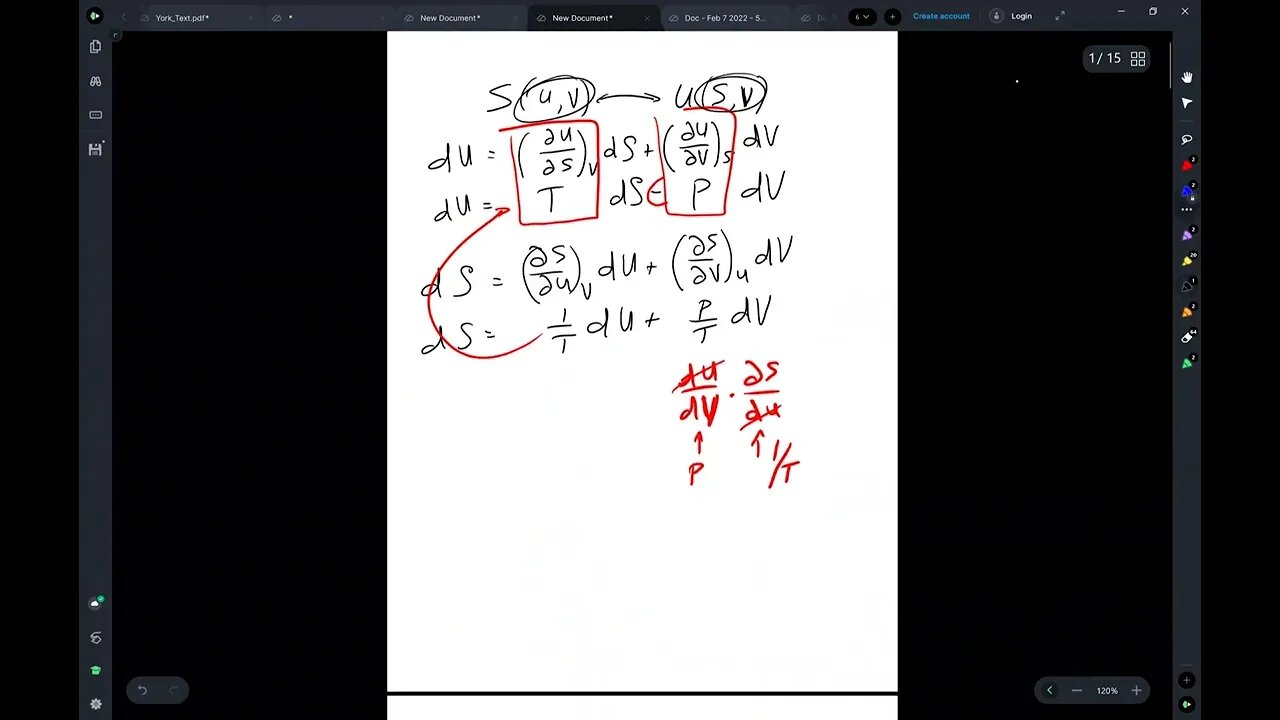 York_Text.pdf*
*
New Document*
New Document*
Doc - Feb 7 2022 - 5...
6
Create account
Login
1/ 15
S(u,V) ⟷ U(S,V)
dU = (∂U/∂S)_V dS + (∂U/∂V)_S dV
dU = T dS - P dV
dS = (∂S/∂U)_V dU + (∂S/∂V)_U dV
dS = 1/T dU + P/T dV
dU/dV · ∂S/dU
↑ ↑
P 1/T
120%